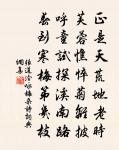 正是天荒地老時
芙蓉憔悴菊離披
呼童試探溪南路
春到寒梅第幾枝
張道洽詠梅雜詩詞典
網集